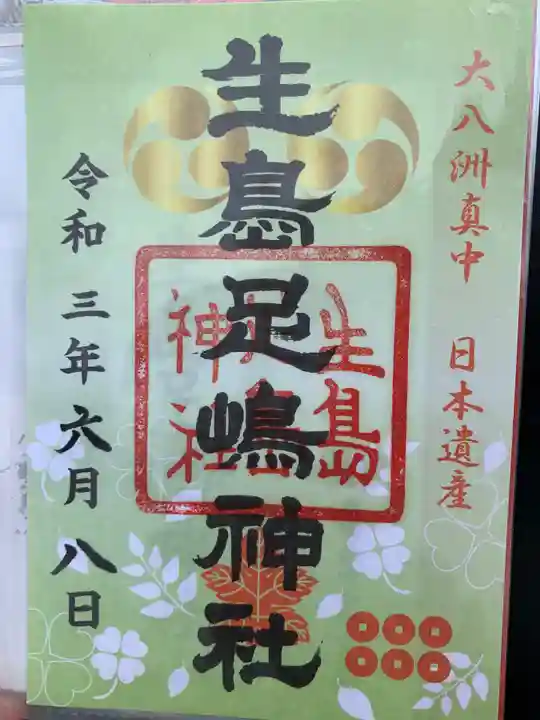 大八洲真中 日本遺産
生島足嶋神社
生島
神社
令和三年六月八日